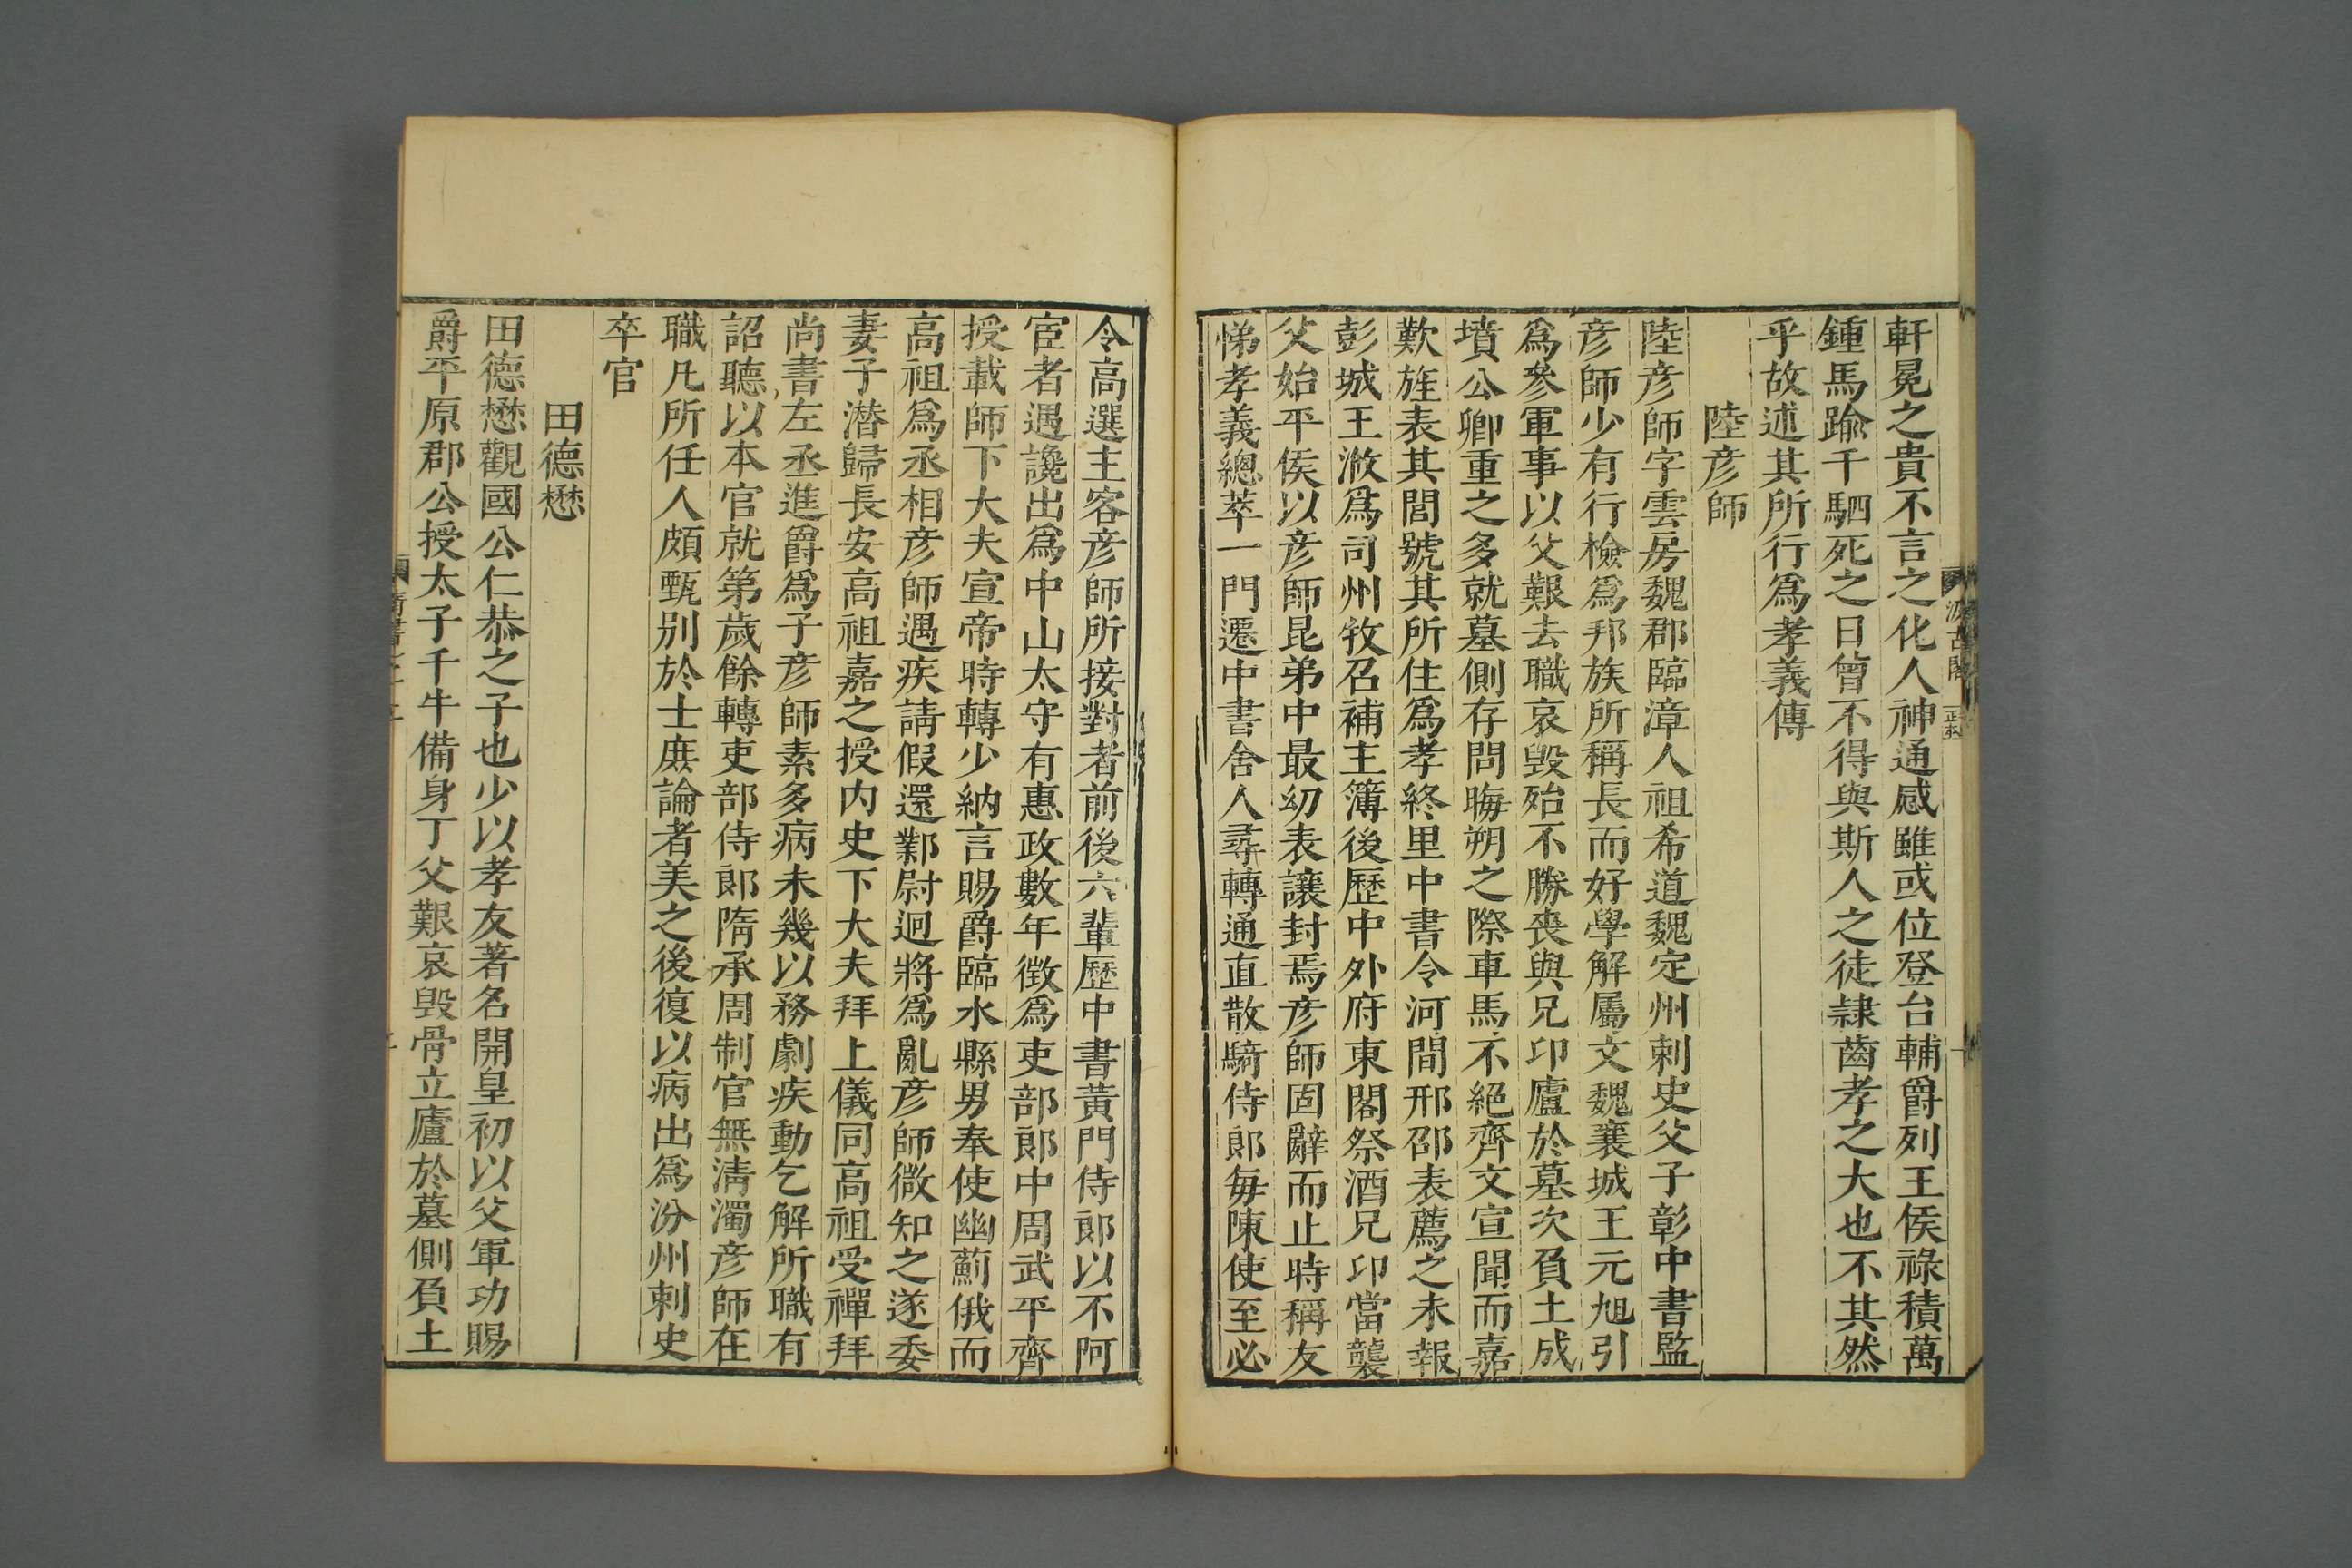 汲古閣
正本
軒冕之貴不言之化人神通感雖或位登台輔爵列王侯祿積萬
鍾馬踰千駟死之日曾不得與斯人之徒隷齒孝之大也不其然
乎故述其所行爲孝義傳
陸彦師
陸彦師字雲房魏郡臨漳人祖希道魏定州刺史父子彰中書監
彦師少有行檢爲邦族所稱長而好學解屬文魏襄城王元旭引
爲參軍事以父艱去職哀毀殆不勝喪與兄卬廬於墓次負土成
墳公卿重之多就墓側存問晦朔之際車馬不絕齊文宣聞而嘉
歎旌表其閭號其所住爲孝終里中書令河間邢邵表薦之未報
彭城王浟爲司州牧召補主簿後歷中外府東閣祭酒兄卬當襲
父始平侯以彦師昆弟中最幼表讓封焉彦師固辭而止時稱友
悌孝義總萃一門遷中書舍人尋轉通直散騎侍郎每陳使至必
令高選主客彦師所接對者前後六輩歷中書黃門侍郎以不阿
宦者遇讒出爲中山太守有惠政數年徴爲吏部郎中周武平齊
授載師下大夫宣帝時轉少納言賜爵臨水縣男奉使幽薊俄而
高祖爲丞相彦師遇疾請假還鄴尉迥將爲亂彦師微知之遂委
妻子潛歸長安高祖嘉之授內史下大夫拜上儀同高祖受禪拜
尚書左丞進爵爲子彦師素多病未幾以務劇疾動乞解所職有
詔聽以本官就第歲餘轉吏部侍郎隋承周制官無清濁彦師在
職凡所任人頗甄別於士庶論者美之後復以病出爲汾州刺史
卒官
田德懋
田德懋觀國公仁恭之子也少以孝友著名開皇初以父軍功賜
爵平原郡公授太子千牛備身丁父艱哀毀骨立廬於墓側負土